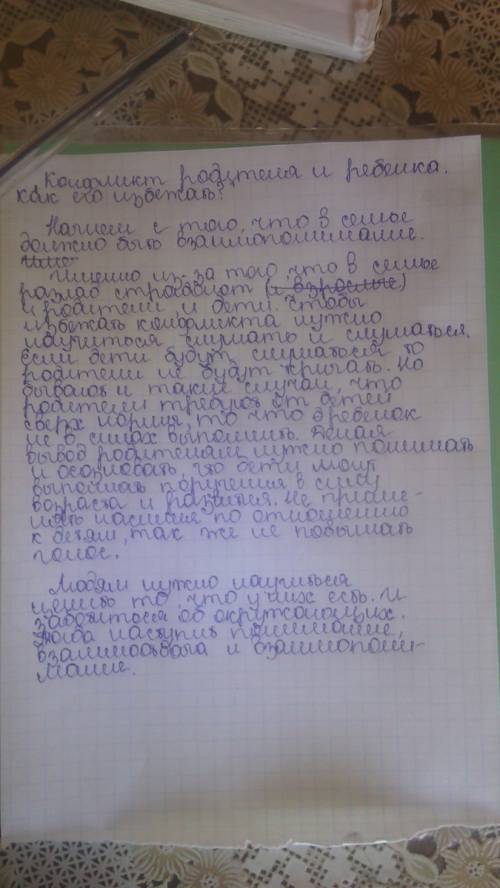 Конфликт родителя и ребенка.
Как его избежать?
Начнем с того, что в семье
должно быть взаимопонимание.
Име
Именно из-за того, что в семье
разлад страдают (и взрослые)
и родители, и дети. Чтобы
избежать конфликта нужно
научиться слушать и слушаться.
Если дети будут слушаться, то
родители не будут кричать. Но
бывают и такие случаи, что
родители требуют от детей
сверх нормы, то что ребенок
не в силах выполнить. Делая
вывод родителям нужно понимать
и осозновать, что дети могут
выполнять поручения в силу
возраста и развития. Не приме-
нять насилие по отношению
к детям, так же не повышать
голос.
Людям нужно научиться
ценить то, что у них есть. И
заботиться об окружающих.
Тогда наступит понимание,
и взаимопони-
мание.